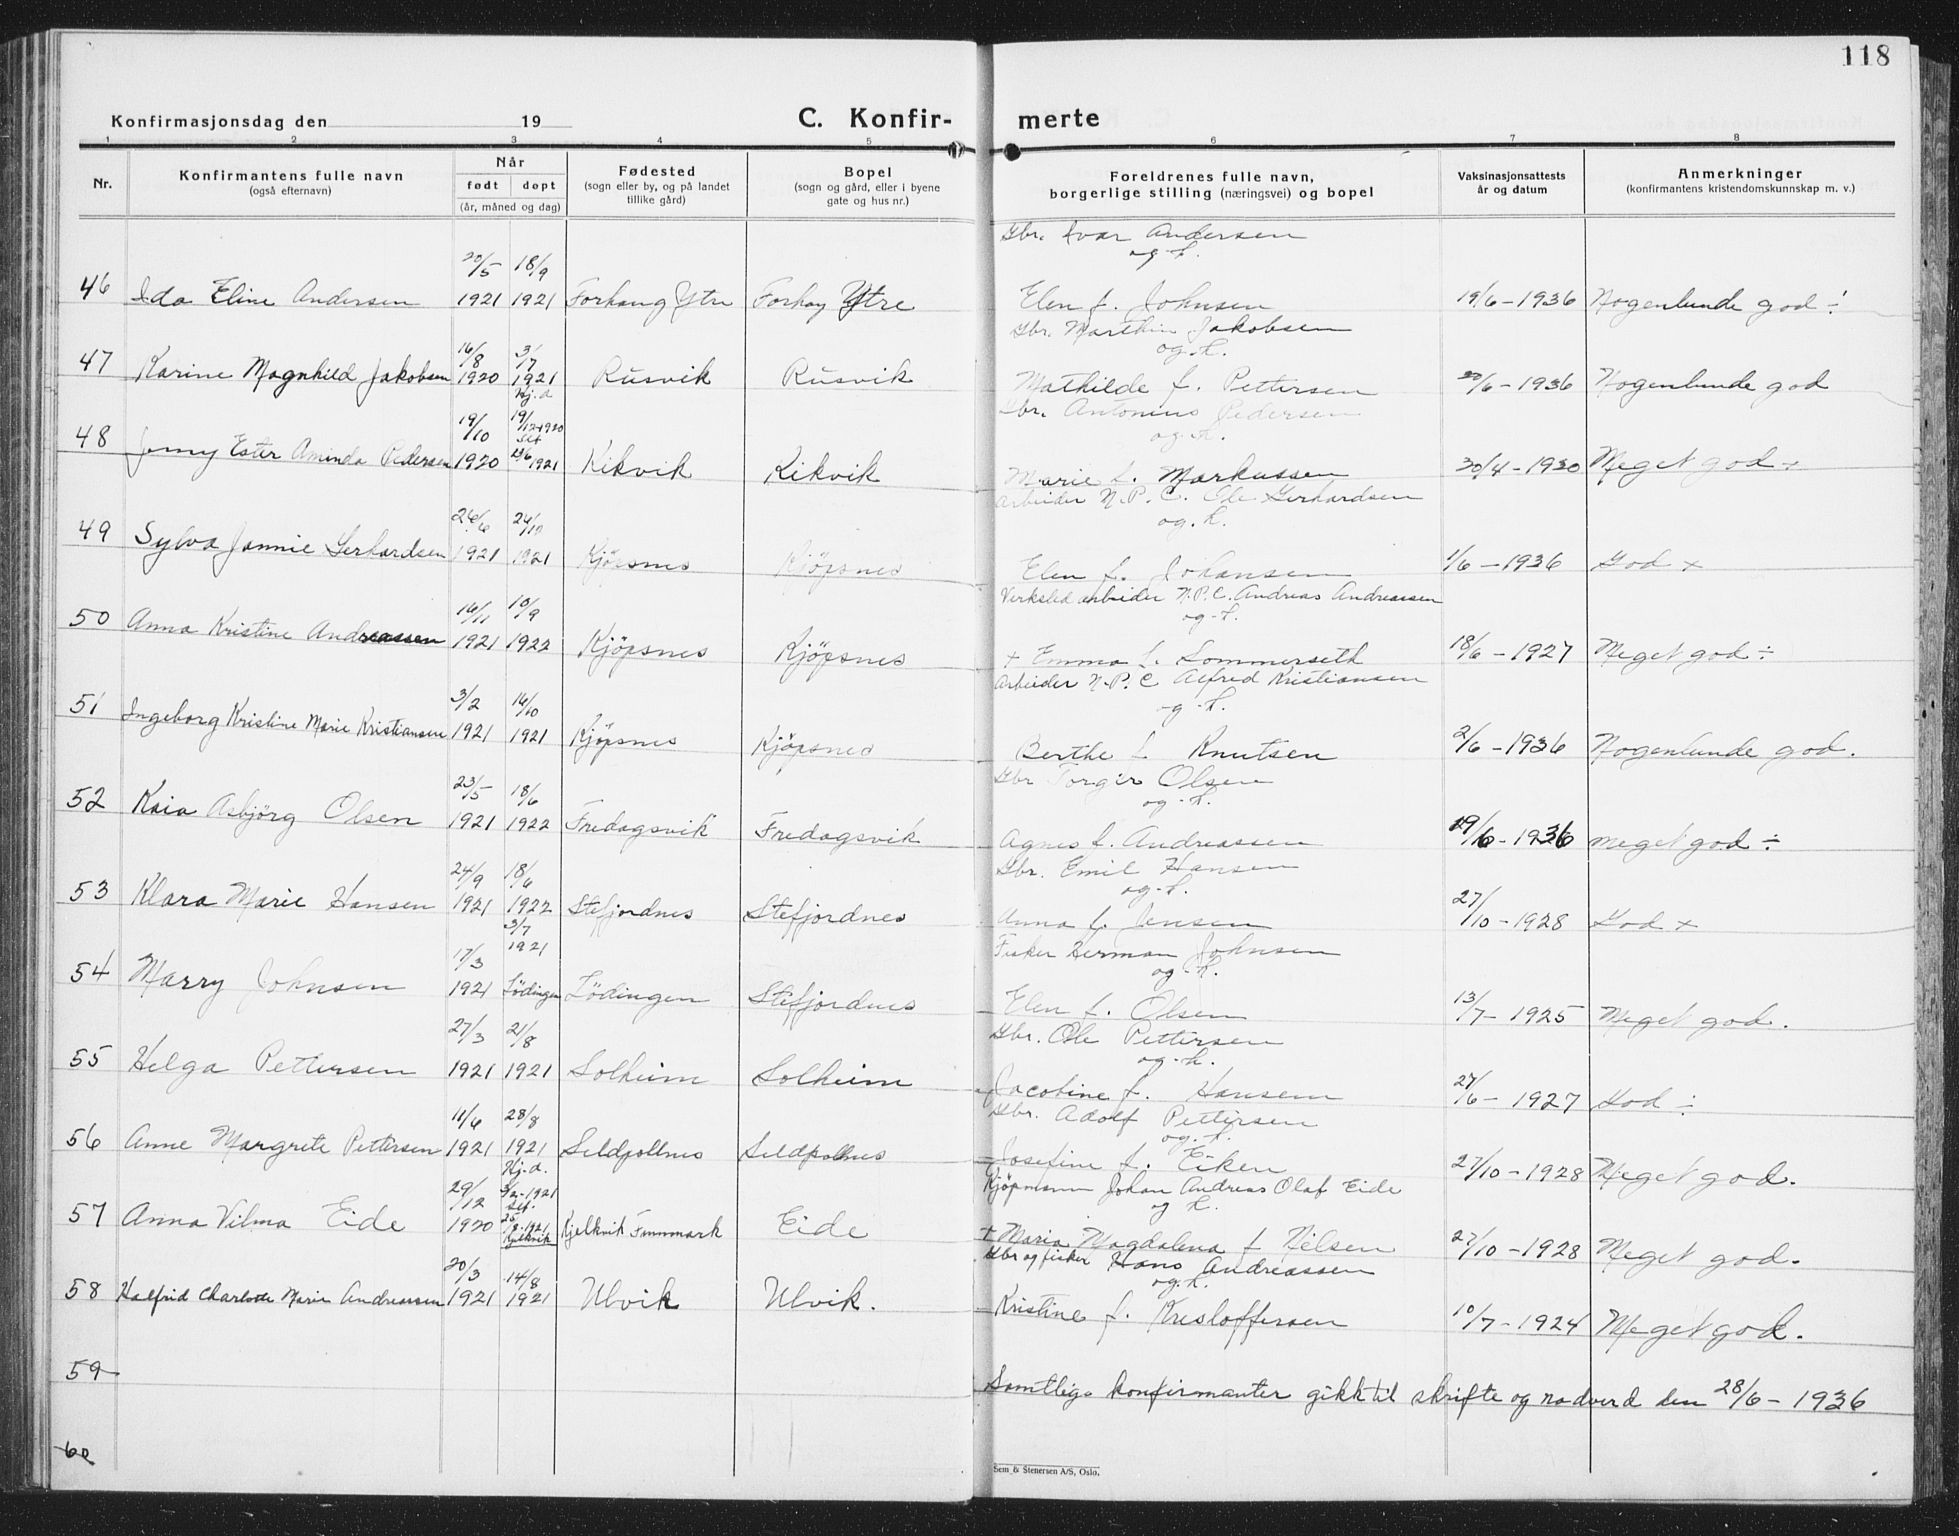 118
Konfirmasjonsdag den 19
C. Konfir-
merte
1 2 3 4 5 6 7 8
Nr.
Konfirmantens fulle navn
(også efternavn)
Når
født døpt
(år, måned og dag)
Fødested
(sogn eller by, og på landet
tillike gård)
Bopel
(sogn og gård, eller i byene
gate og hus nr.)
Foreldrenes fulle navn,
borgerlige stilling (næringsvei) og bopel
Vaksinasjonsattests
år og datum
Anmerkninger
(konfirmantens kristendomskunnskap m. v.)
Gbr. Ivar Andersen
og h.
20/5 18/9
46 Ida Eline Andersen 1921 1921 Forhaug Ytre Forhag Ytre Elen f. Johnsen 19/6-1936 Nogenlunde god ÷
Gbr. Marthin Jakobsen
og h.
16/8 3/7
47 Karine Magnhild Jakobsen 1920 1921 Rusvik Rusvik Mathilde f. Pettersen 20/6-1936 Nogenlunde god
Hj.d
Gbr. Antonius Pedersen
og h.
19/10 19/12 1920
Jenny Ester Aminda Pedersen
48 1920 23/6 1921 Kikvik Kikvik Marie f. Markussen 30/4-1930 Meget god +
Arbeider N.P.C. Ole Gerhardsen
og h.
26/6 24/10
49 Sylva Jannie Gerhardsen 1921 1921 Kjöpsnes Kjöpsnes Elen f. Johansen 1/6-1936 God +
Verksted arbeider N.P.C. Andreas Andreassen
og h.
16/11 10/9
50 Anna Kristine Andreassen 1921 1922 Kjöpsnes Kjöpsnes + Emma f. Sommerseth 18/6-1927 Meget god ÷
Arbeider N.P.C Alfred Kristiansen
og h.
3/2 16/10
51 Ingeborg Kristine Marie Kristiansen 1921 1921 Kjöpsnes Kjöpsnes Berthe f. Knutsen 2/6-1936 Nogenlunde god.
Gbr Torgir Olsen
og h.
23/5 18/6
52 Kaia Asbjörg Olsen 1921 1922 Fredagsvik Fredagsvik Agnes f. Andreassen 19/6-1936 meget god ÷
Gbr. Emil Hansen
og h.
24/9 18/6
53 Klara Marie Hansen 1921 1922 Stefjordnes Stefjordnes Anna f. Jensen 27/10-1928 God +
Fisker Herman Johnsen
og h.
17/3 3/7 1921
54 Marry Johnsen 1921 Lödingen Lödingen Stefjordnes Elen f. Olsen 13/7-1925 Meget god.
Gbr. Ole Pettersen
og h.
27/3 21/8
55 Helga Pettersen 1921 1921 Solheim Solheim Jacobine f. Hansen 27/6-1927 God ÷
Gbr. Adolf Pettersen
og h.
11/6 28/8
56 Anne Margrete Pettersen 1921 1921 Seldpollnes Seldpollnes Josefine f. Eiken 27/10-1928 Meget god.
Hj.d.
Kjöpmann Johan Andreas Olaf Eide
og h.
29/12 3/2-1921
57 Anna Vilma Eide 1920 25/8-1921 Kjelkvik Kjelkvik Finnmark Eide + Maria Magdalena f Nilsen 27/10-1928 Meget god.
Gbr og fisker Hans Andreassen
og h.
20/3 14/8
58 Halfrid Charlotte Marie Andreassen 1921 1921 Ulvik Ulvik. Kristine f. Kristoffersen 10/7-1924 Meget god.
59
Samtlige konfirmanter gikk til skrifte og nadverd den 28/6-1936
60
Sem & Stenersen A/S, Oslo.